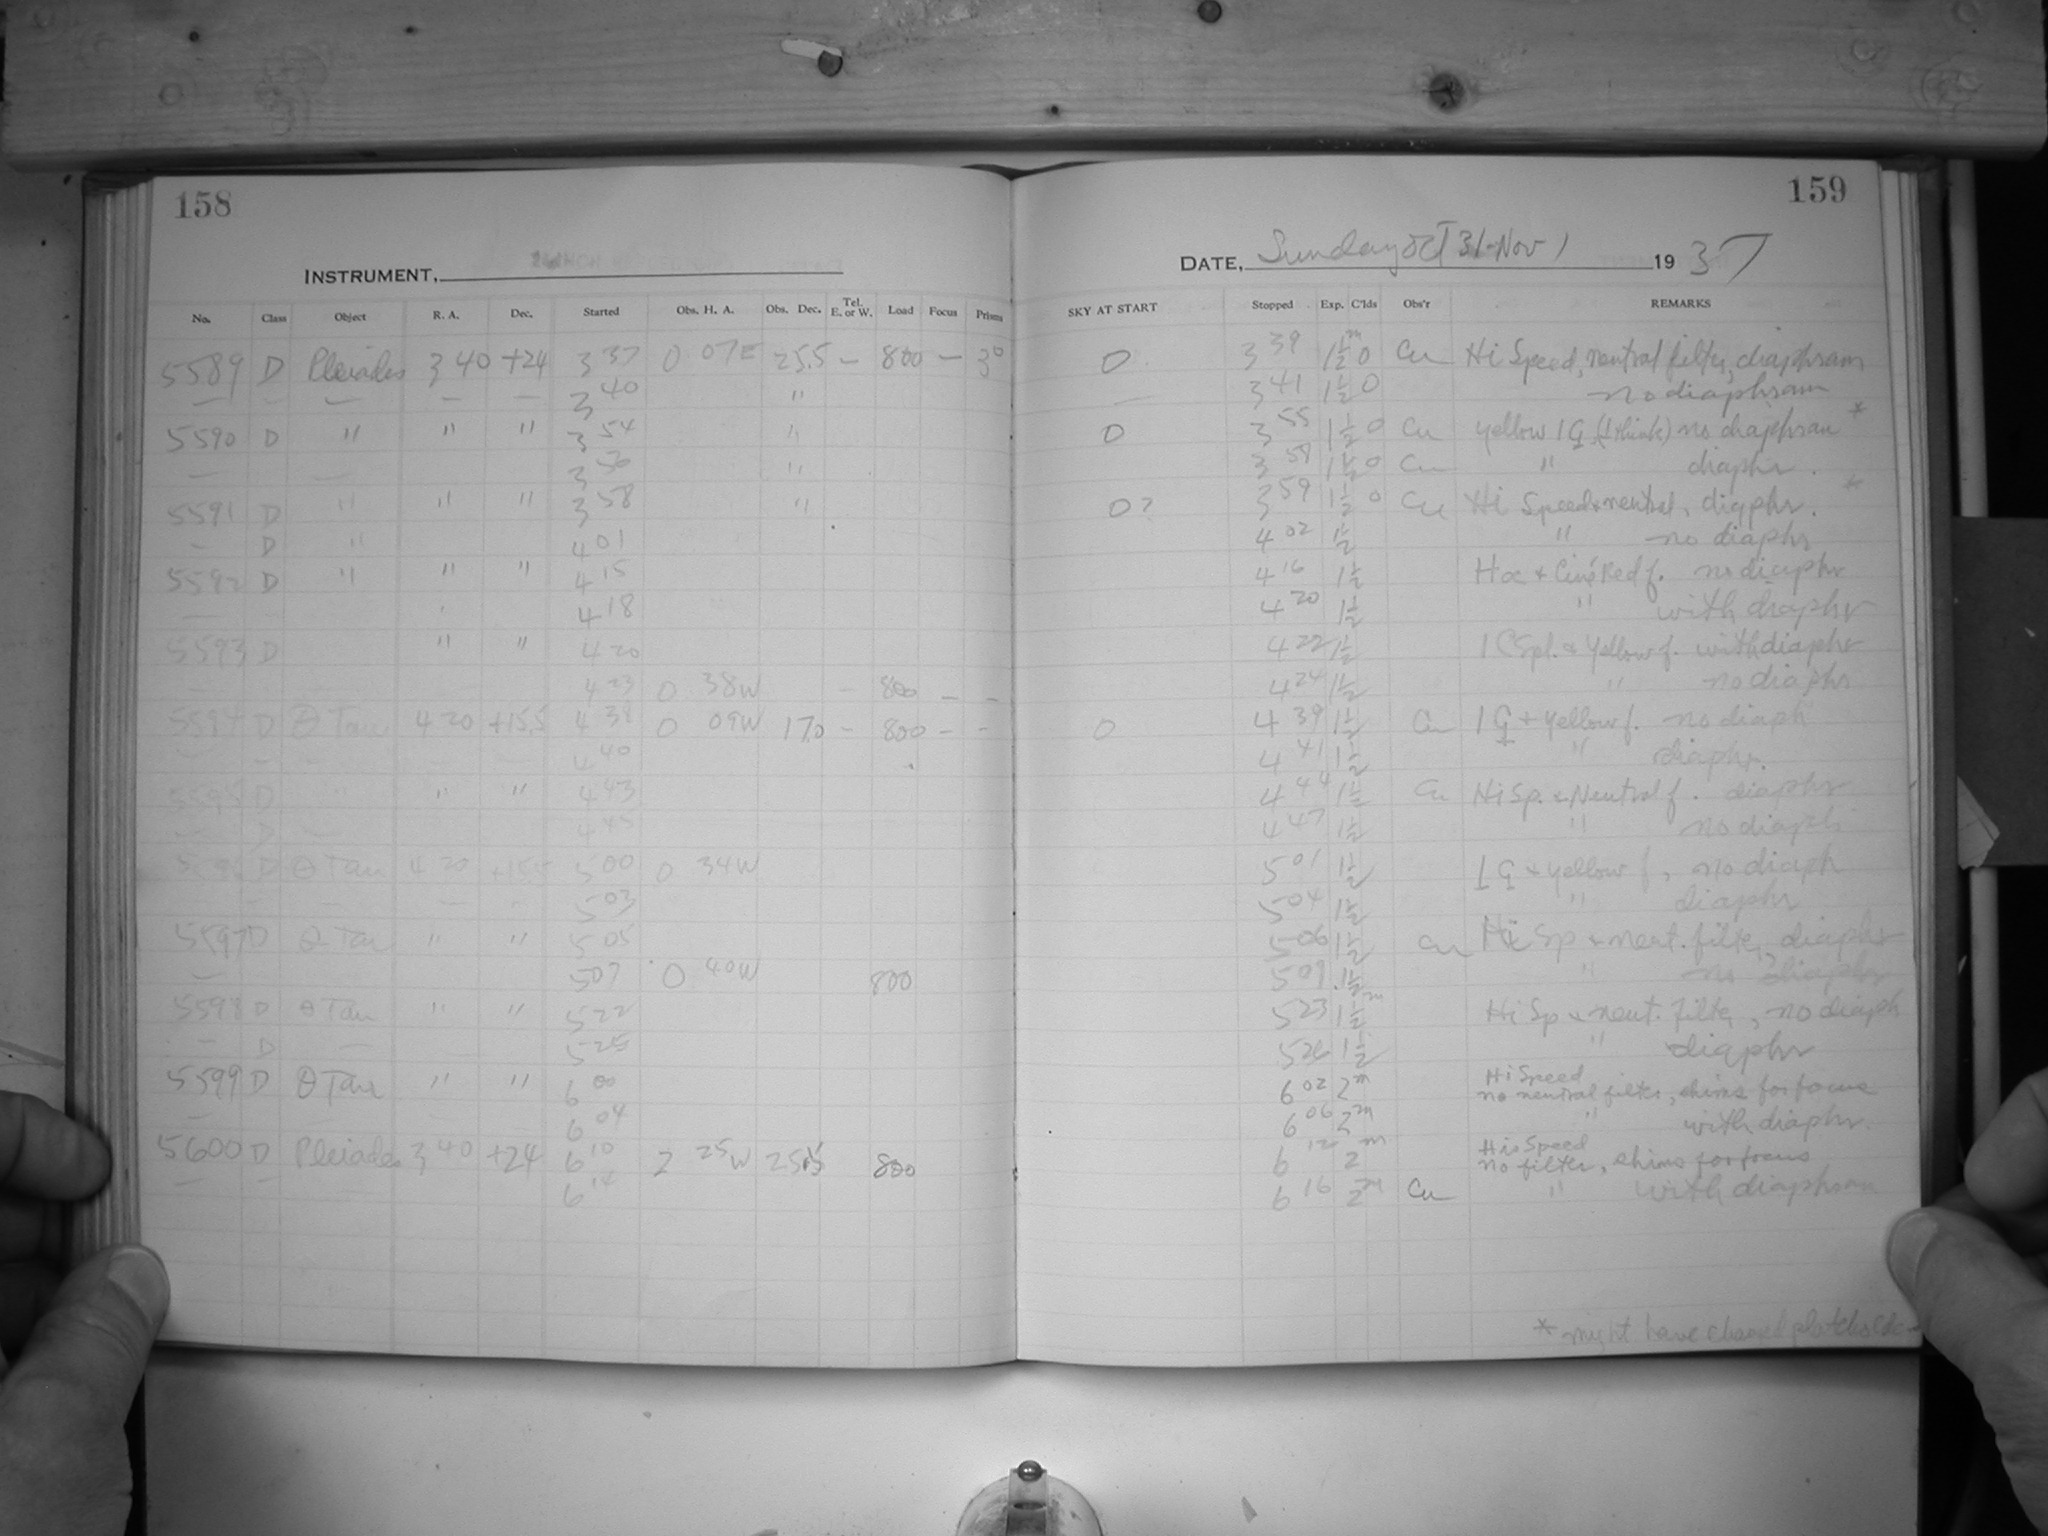 158
159
INSTRUMENT,
DATE, Sunday Oct 31-Nov 1 1937
No. Class Object R. A. Dec. Started Obs. H. A. Obs. Dec. Tel. E. or W. Load Focus Prisms SKY AT START Stopped Exp. C'lds Obs'r REMARKS
5589 D Pleiades 3 40 +24 3 37 0 07E 25.5 – 800 – 3° 0 3 39 1½m 0 Cu Hi Speed, neutral filter, diaphram
— — — — — 3 40 " — 3 41 1½ 0 no diaphram
5590 D " " " 3 54 " 0 3 55 1½ 0 Cu yellow 1G (I think) no diaphram *
— — 3 56 " 3 58 1½ 0 Cu " diaphr.
5591 D " " " 3 58 " 0? 3 59 1½ 0 Cu Hi Speed + neutral, diaphr. *
— D " 4 01 4 02 1½ " no diaphr
5592 D " " " 4 15 4 16 1½ + Red f. no diaphr
— — 4 18 4 20 1½ " with diaphr
5593 D " " 4 20 4 22 1½ 1 C Spl. + Yellow f. with diaphr
— 4 23 0 38W – 800 – – 4 24 1½ " no diaphr
5594 D θ Tau 4 20 +15.5 4 38 0 09W 17.0 – 800 – – 0 4 39 1½ Cu 1 G + yellow f. no diaph
— — — — — 4 40 4 41 1½ " diaphr.
5595 D " " " 4 43 4 44 1½ Cu Hi Sp. + Neutral f. diaphr
— D — 4 45 4 47 1½ " no diaph
5596 D θ Tau 4 20 +15.5 5 00 0 34W 5 01 1½ 1 G + yellow f, no diaph
— — — — 5 03 5 04 1½ " diaphr
5597 D θ Tau " " 5 05 5 06 1½ Cu Hi Sp + neut. filter, diaphr
— 5 07 0 40W 800 5 09 1½ " no diaphr
5598 D θ Tau " " 5 22 5 23 1½m Hi Sp + neut. Filter, no diaph
— D — 5 25 5 26 1½ " diaphr
5599 D θ Tau " " 6 00 6 02 2m Hi Speed
no neutral filter, shims for focus
— 6 04 6 06 2m " with diaphr.
5600 D Pleiades 3 40 +24 6 10 2 25W 25.5 800 6 12 2m Hi Speed
No filter, shims for focus
— — 6 14 6 16 2m Cu " with diaphram
* might have